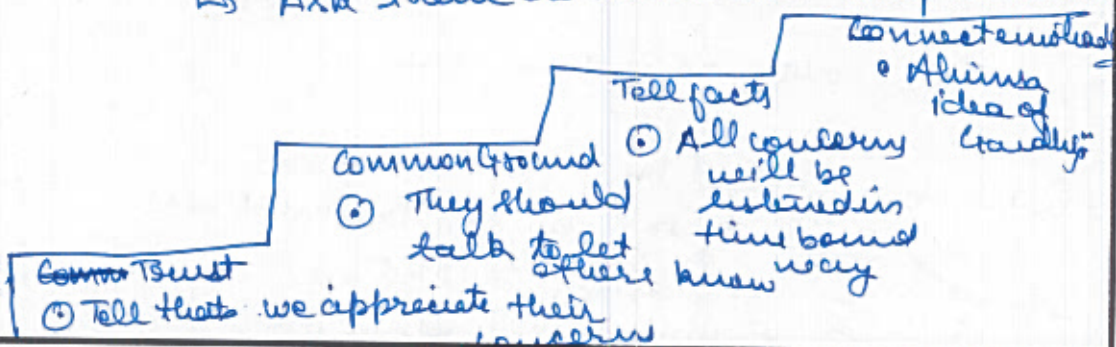 Ask
Connect emotionally
• Ahimsa
idea of
Gandhiji
Tell facts
⊙ All concerns
will be
listened in
time bound
way
Common Ground
⊙ They should
talk to let
others know
Trust
⊙ Tell that we appreciate their
concern